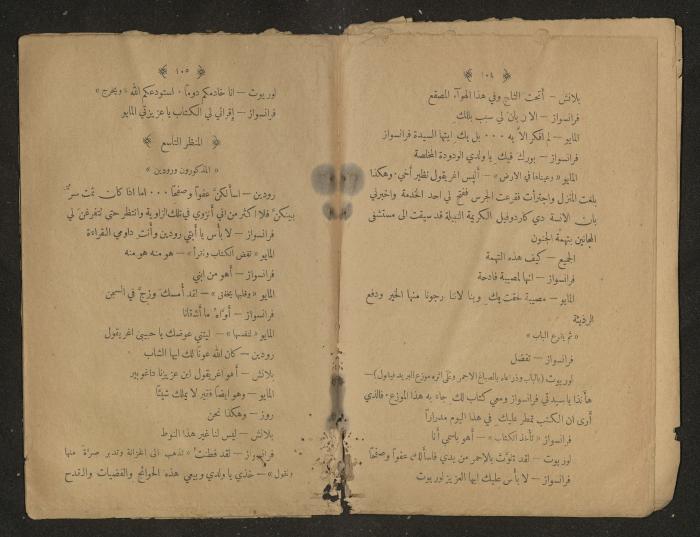 ﴿ ١٠٤ ﴾
بلانش — أتحت الثلج وفي هذا الهواء المصقع
فرانسواز — الآن بان لي سبب بلك
المايو — لم افكر الا به ٠٠٠ بل بك ايتها السيدة فرانسواز
فرانسواز — بورك فيك يا ولدي الودودة المخلصة
المايو « وعيناها في الارض » — أليس اغريقول نظير أخي. وهكذا
بلغت المنزل واجترأت فقرعت الجرس ففتح لي احد الخدمة واخبرني
بان الانسة دي كاردوفيل الكريمة النبيلة قد سيقت الى مستشفى
المجانين بتهمة الجنون
الجميع — كيف هذه التهمة
فرانسواز — انها لمصيبة فادحة
المايو — مصيبة لحقت بك وبنا لاننا رجونا منها الخير ودفع
الرذيئة
« ثم يقرع الباب »
فرانسواز — تفضل
لوريوت (بالباب وذراعاه بالصباغ الاحمر وعلى اثره موزع البريد فيقول) —
هأنذا يا سيدتي فرانسواز ومعي كتاب لك جاء به هذا الموزع. فالذي
أرى ان الكتب تمطر عليك في هذا اليوم مدراراً
فرانسواز « تأخذ الكتاب » — أهو باسمي أنا
لوريوت — لقد تلوّثت بالاحمر من يدي فاسألك عفواً وصفحاً
فرانسواز — لا بأس عليك ايها العزيز لوريوت
﴿ ١٠٥ ﴾
لوريوت — انا خادمكم دوماً. استودعكم الله « ويخرج »
فرانسواز — إقرإي لي الكتاب يا عزيزتي المايو
﴿ المنظر التاسع ﴾
« المذكورون ورودين »
رودين — اسألكنَّ عفواً وصفحاً ٠٠٠ اما اذا كان ثمت سرٌّ
بينكنَّ فلا اكثر من اني أنزوي في تلك الزاوية وانتظر حتى تتفرغن لي
فرانسواز — لا بأس يا أبتي رودين وأنتِ داومي القراءة
المايو « تفض الكتاب وتقرأ » — هو منه هو منه
فرانسواز — أهو من ابني
المايو « وقلبها يخفق » — لقد أمسك وزجَّ في السجن
فرانسواز — أوّاه ما أشقانا
المايو « لنفسها » — ليتني عوضك يا حبيبي اغريقول
رودين — كان الله عوناً لك ايها الشاب
بلانش — أهو اغريقول ابن عزيزنا داغوبير
المايو — وهو ايضاً فقير لا يملك شيئاً
روز — وهكذا نحن
بلانش — ليس لنا غير هذا النوط
فرانسواز — لقد فطنت « تذهب الى الخزانة وتدبر صراة منها
وتقول » — خذي يا ولدي وبيعي هذه الحوائج والفضيات والقدح